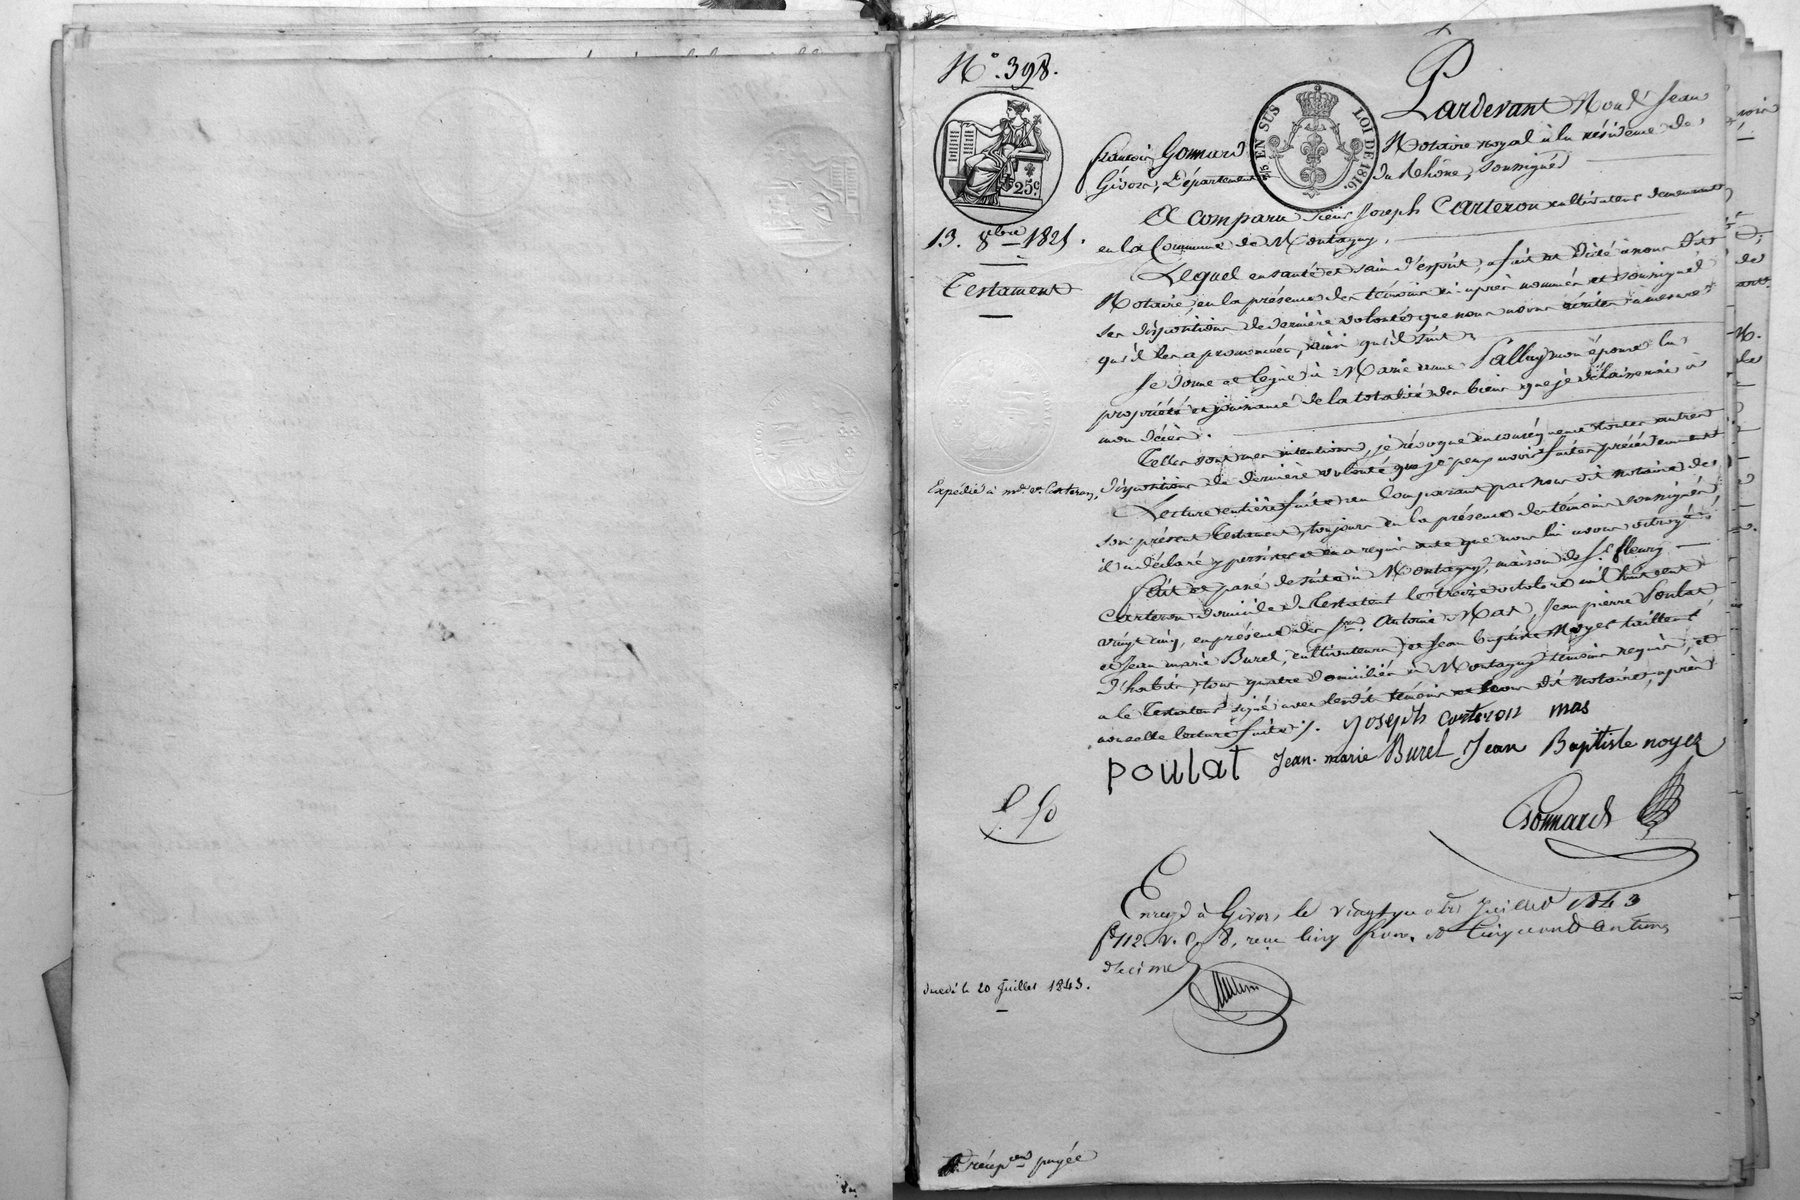 N° 398.
25c
EN SUS
LOI DE 1816.
13. 8bre 1825.
Testament
Expédié à md. ve. Carteron,
Pardevant Nous Jean
françois Gonnard Notaire royal à la résidence de
Givors, Département du Rhône, soussigné
A comparu sieur Joseph Carteron cultivateur demeurant
en la Commune de Montagny.
Lequel en santé et sain d'esprit, a fait et dicté à nous dit
Notaire, en la présence des témoins ci-après nommés et soussignés
ses dispositions de dernière volonté que nous avons écrites à mesure
qu'il les a prononcées, ainsi qu'il suit
Je donne et lègue à Marie anne Pallay mon épouse la
propriété et jouissance de la totalité des biens que je délaisserai à
mon décès.
Telles sont mes intentions, je révoque en conséquence toutes autres
dispositions de dernière volonté que je peux avoir faites précédemment
Lecture entière faite au Comparant par nous dit notaire de
son présent Testament, toujours en la présence des témoins soussignés,
il a déclaré y persister et en a requis acte que nous lui avons octroyé
Fait et passé de suite à Montagny, maison de Sr. fleury
Carteron domicile du Testateur le treize octobre mil huit cent
vingt cinq, en présence des srs. Antoine Mas, Jean pierre Poulat
et Jean marie Burel, cultivateurs, et Jean baptiste Noyer tailleur
d'habits, tous quatre domiciliés à Montagny témoins requis, et
a le Testateur signé avec lesdits témoins et nous dit notaire, après
nouvelle lecture faite ./. Joseph carteron mas
poulat Jean-marie Burel Jean Baptiste noyer
Gonnard
Enregé à Givors, le vingt quatre Juillet 1843
f° 112. v. C. 8, reçu cinq francs et cinquante centimes
décime
décédé le 20 Juillet 1843.
payée